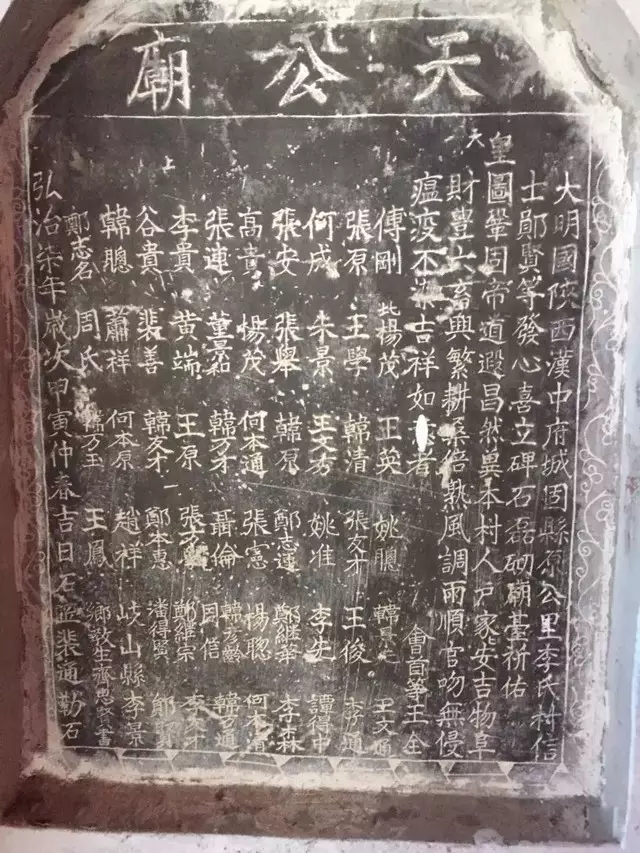 天公廟
大明國陝西漢中府城固縣原公里李氏村信
士鄖賢等發心喜立碑石磊砌廟臺祈佑
大皇圖鞏固帝道遐昌然異本村人戶家安吉物阜
財豐六畜興繁耕桑倍熟風調雨順官吻無侵
瘟疫不 吉祥如 者 會首等王全
傅剛 北楊茂 王英 姚聰 王文通
張原 王學 韓清 張友才 王俊 李通
何成 朱景 王文秀 姚准 李先 譚得中
張安 張舉 韓原 鄭志蓮 鄭繼華 李森
高貴 楊茂 何本通 張憲 楊聰 何本清
張連 董景和 韓万才 聶倫 韓彥齡 韓万通
李貴 黃端 王原 周信 李友才
谷貴 裴善 韓友才 鄭本惠 鄭繼宗 鄖賢
韓聰 蕭祥 何本原 趙祥 潘得賢
鄭志名 周氏 韓万玉 王鳳 岐山縣李景
弘治柒年歲次甲寅仲春吉日石匠裴通勒石